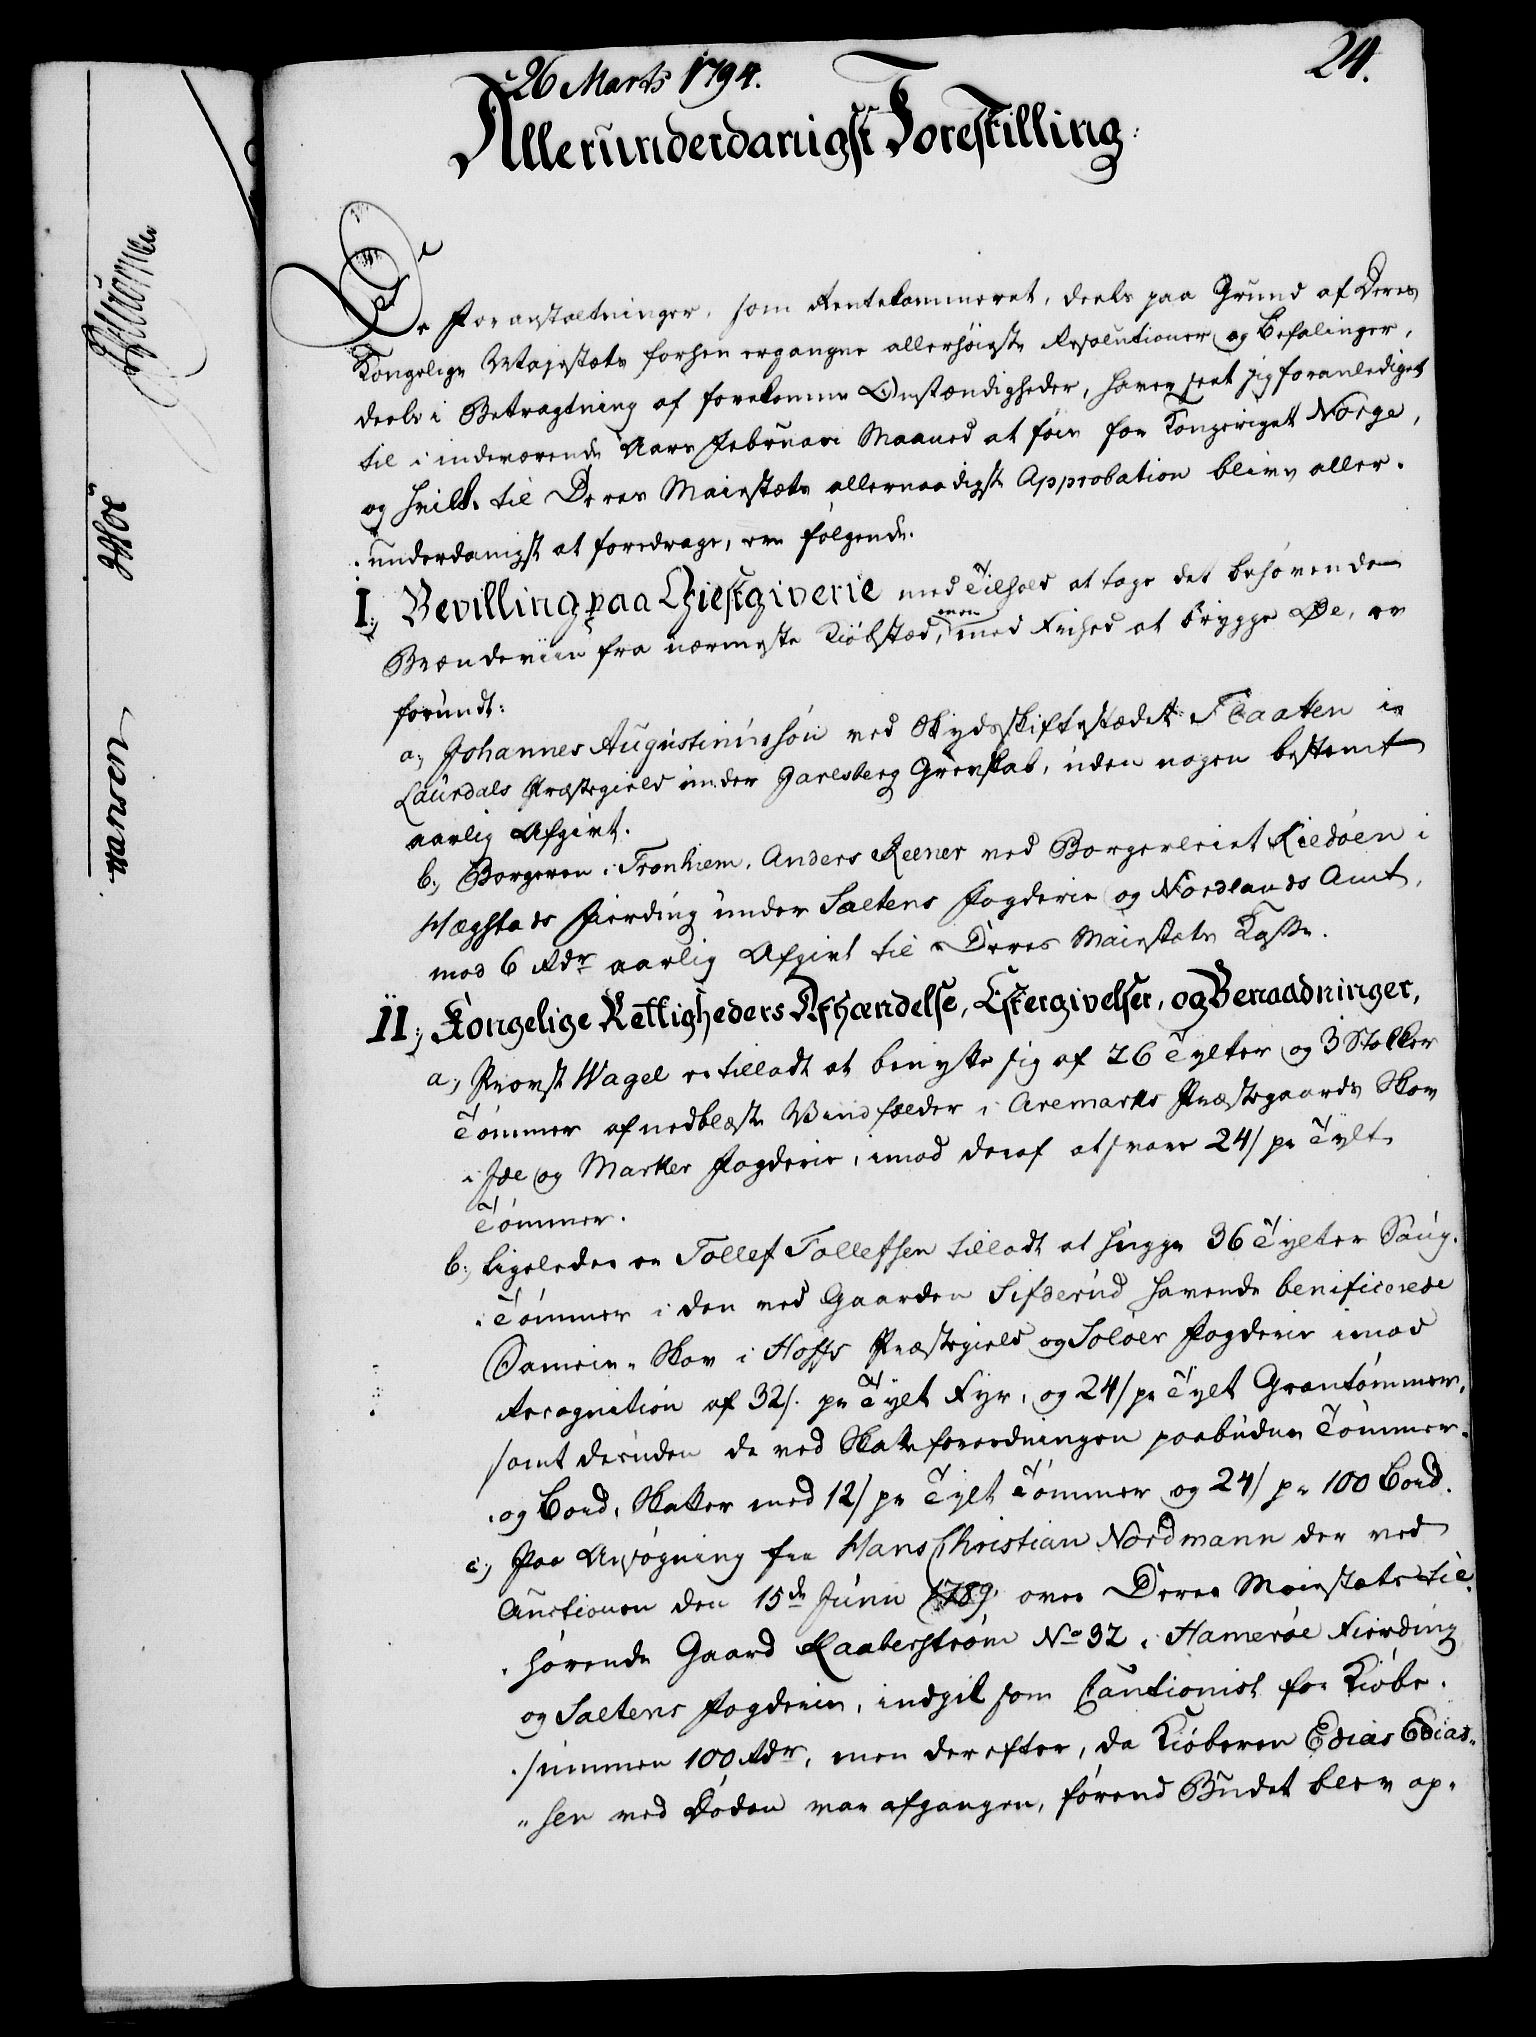 26 Marts 1794.
24.
Allerunderdanigst Forestilling:
De Foranstaltninger, som Rentekammeret, deels paa Grund af Deres
Kongelige Majestæts forhen ergangne allerhöieste Resolutioner og Befalinger,
deels i Betragtning af forekomne Omstændigheder, haver seet sig foranlediget
til i indeværende Aars Februari Maaned at föie for Kongeriget Norge,
og hvilke til Deres Maiestæts allernaadigste Approbation blive aller-
underdanigst at foredrage, ere fölgende.
I, Bevilling paa Giestgiverie med Tilhold at tage det behövende
Brændeviin fra nærmeste Kiöbstæd, men med Frihed at brygge Öl, er
forundt:
a, Johannes Augustinussön ved Skydsskiftestædet Flaaten i
Laurdals Præstegield under Jarlsberg Grevskab, uden nogen bestemt
aarlig Afgivt.
b, Borgeren i Tronhiem, Anders Reener ved Borgerleiet Kiedöen i
Hægstads Fierding under Saltens Fogderie og Nordlands Amt,
mod 6 Rdr aarlig Afgivt til Deres Maiestæts Kasse.
II, Kongelige Rettigheders Afhændelse, Eftergivelser, og Benaadninger,
a, Provst Wagel er tilladt at benytte sig af 26 Tylter og 3 Stokker
Tömmer af nedblæste Vindfælder i Aremarks Præstegaards Skov
i Ide og Marker Fogderie, imod deraf at svare 24/ pr Tylt
Tömmer.
b, Ligeledes er Tollef Tollefsen tilladt at hugge 36 Tylter Saug-
Tömmer i den ved Gaarden Sifderud havende benificerede
Sameie-Skov i Hoffs Præstegield og Solöer Fogderie imod
Recognition af 32/. pr Tylt Fyr, og 24/ pr Tylt Grantömmer,
samt desuden de ved Skatteforordningen paabudne Tömmer-
og Bord-Skatter med 12/ pr Tylt Tömmer og 24/ pr 100 Bord.
c, Paa Ansögning fra Hans Christian Nordmann der ved
Auctionen den 15de Junii 1789 over Deres Maiestæts til-
hörende Gaard Raaberström No 32 i Hameröe Fierding
og Saltens Fogderie, indgik som Cautionist for Kiöbe-
summen 100 Rdr, men derefter, da Kiöberen Edias Edias-
sen ved Döden var afgangen, förend Budet blev ap-